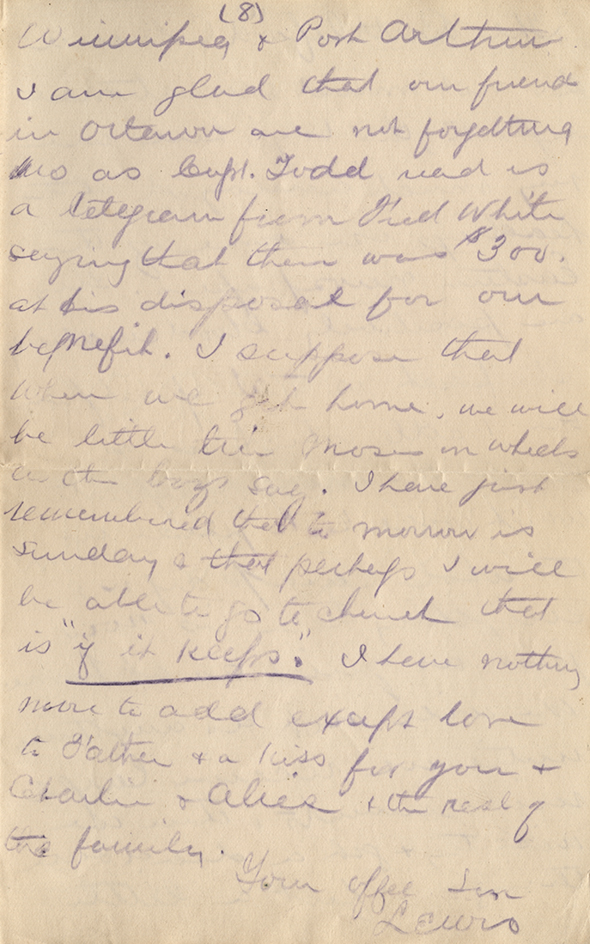 (8)
Winnipeg & Port Arthur
I am glad that our friend
in Ottawa are not forgetting
us as Capt. Todd read us
a telegram from Fred White
saying that there was $300.
at his disposal for our
benefit. I suppose that
when we get home, we will
be little tin Moses on wheels
as the boys say. I have just
remembered that to morrow is
Sunday & that perhaps I will
be able to go to church that
is "if it keeps". I have nothing
more to add except love
to Father & a kiss for you &
Charlie & Alice & the rest of
the family.
Your affec Son
Lewis